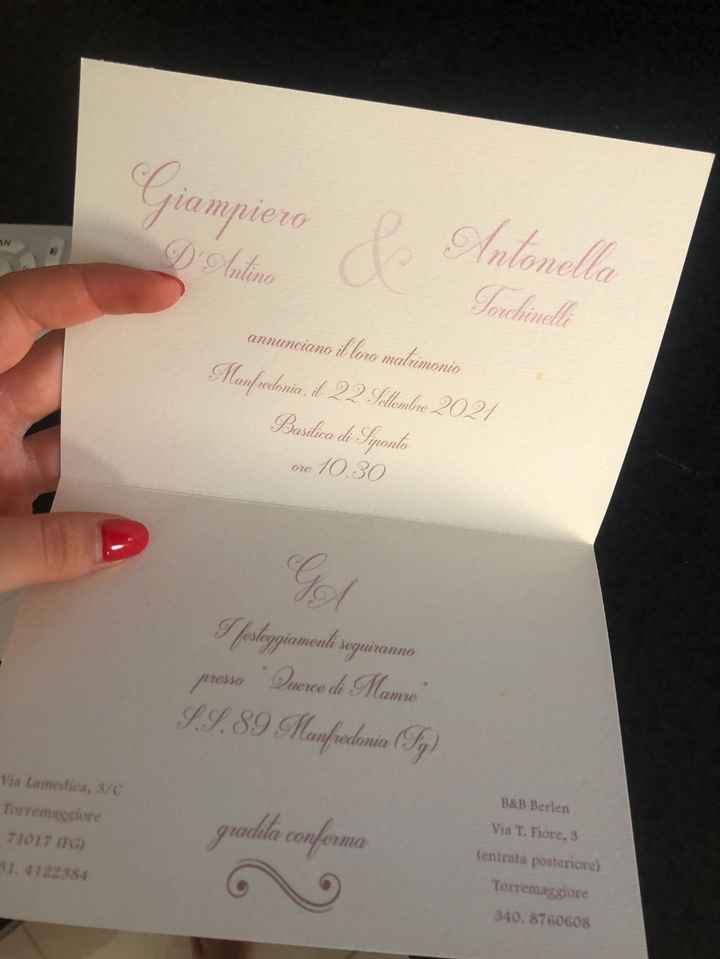 Giampiero
D'Antino
&
Antonella
Torchinelli
annunciano il loro matrimonio
Manfredonia, il 22 Settembre 2021
Basilica di Siponto
ore 10.30
GA
I festeggiamenti seguiranno
presso "Querce di Mamre"
S.S. 89 Manfredonia (Fg)
gradita conferma
Via Lamedica, 3/C
Torremaggiore
71017 (FG)
81. 4122384
B&B Berlen
Via T. Fiore, 3
(entrata posteriore)
Torremaggiore
340. 8760608